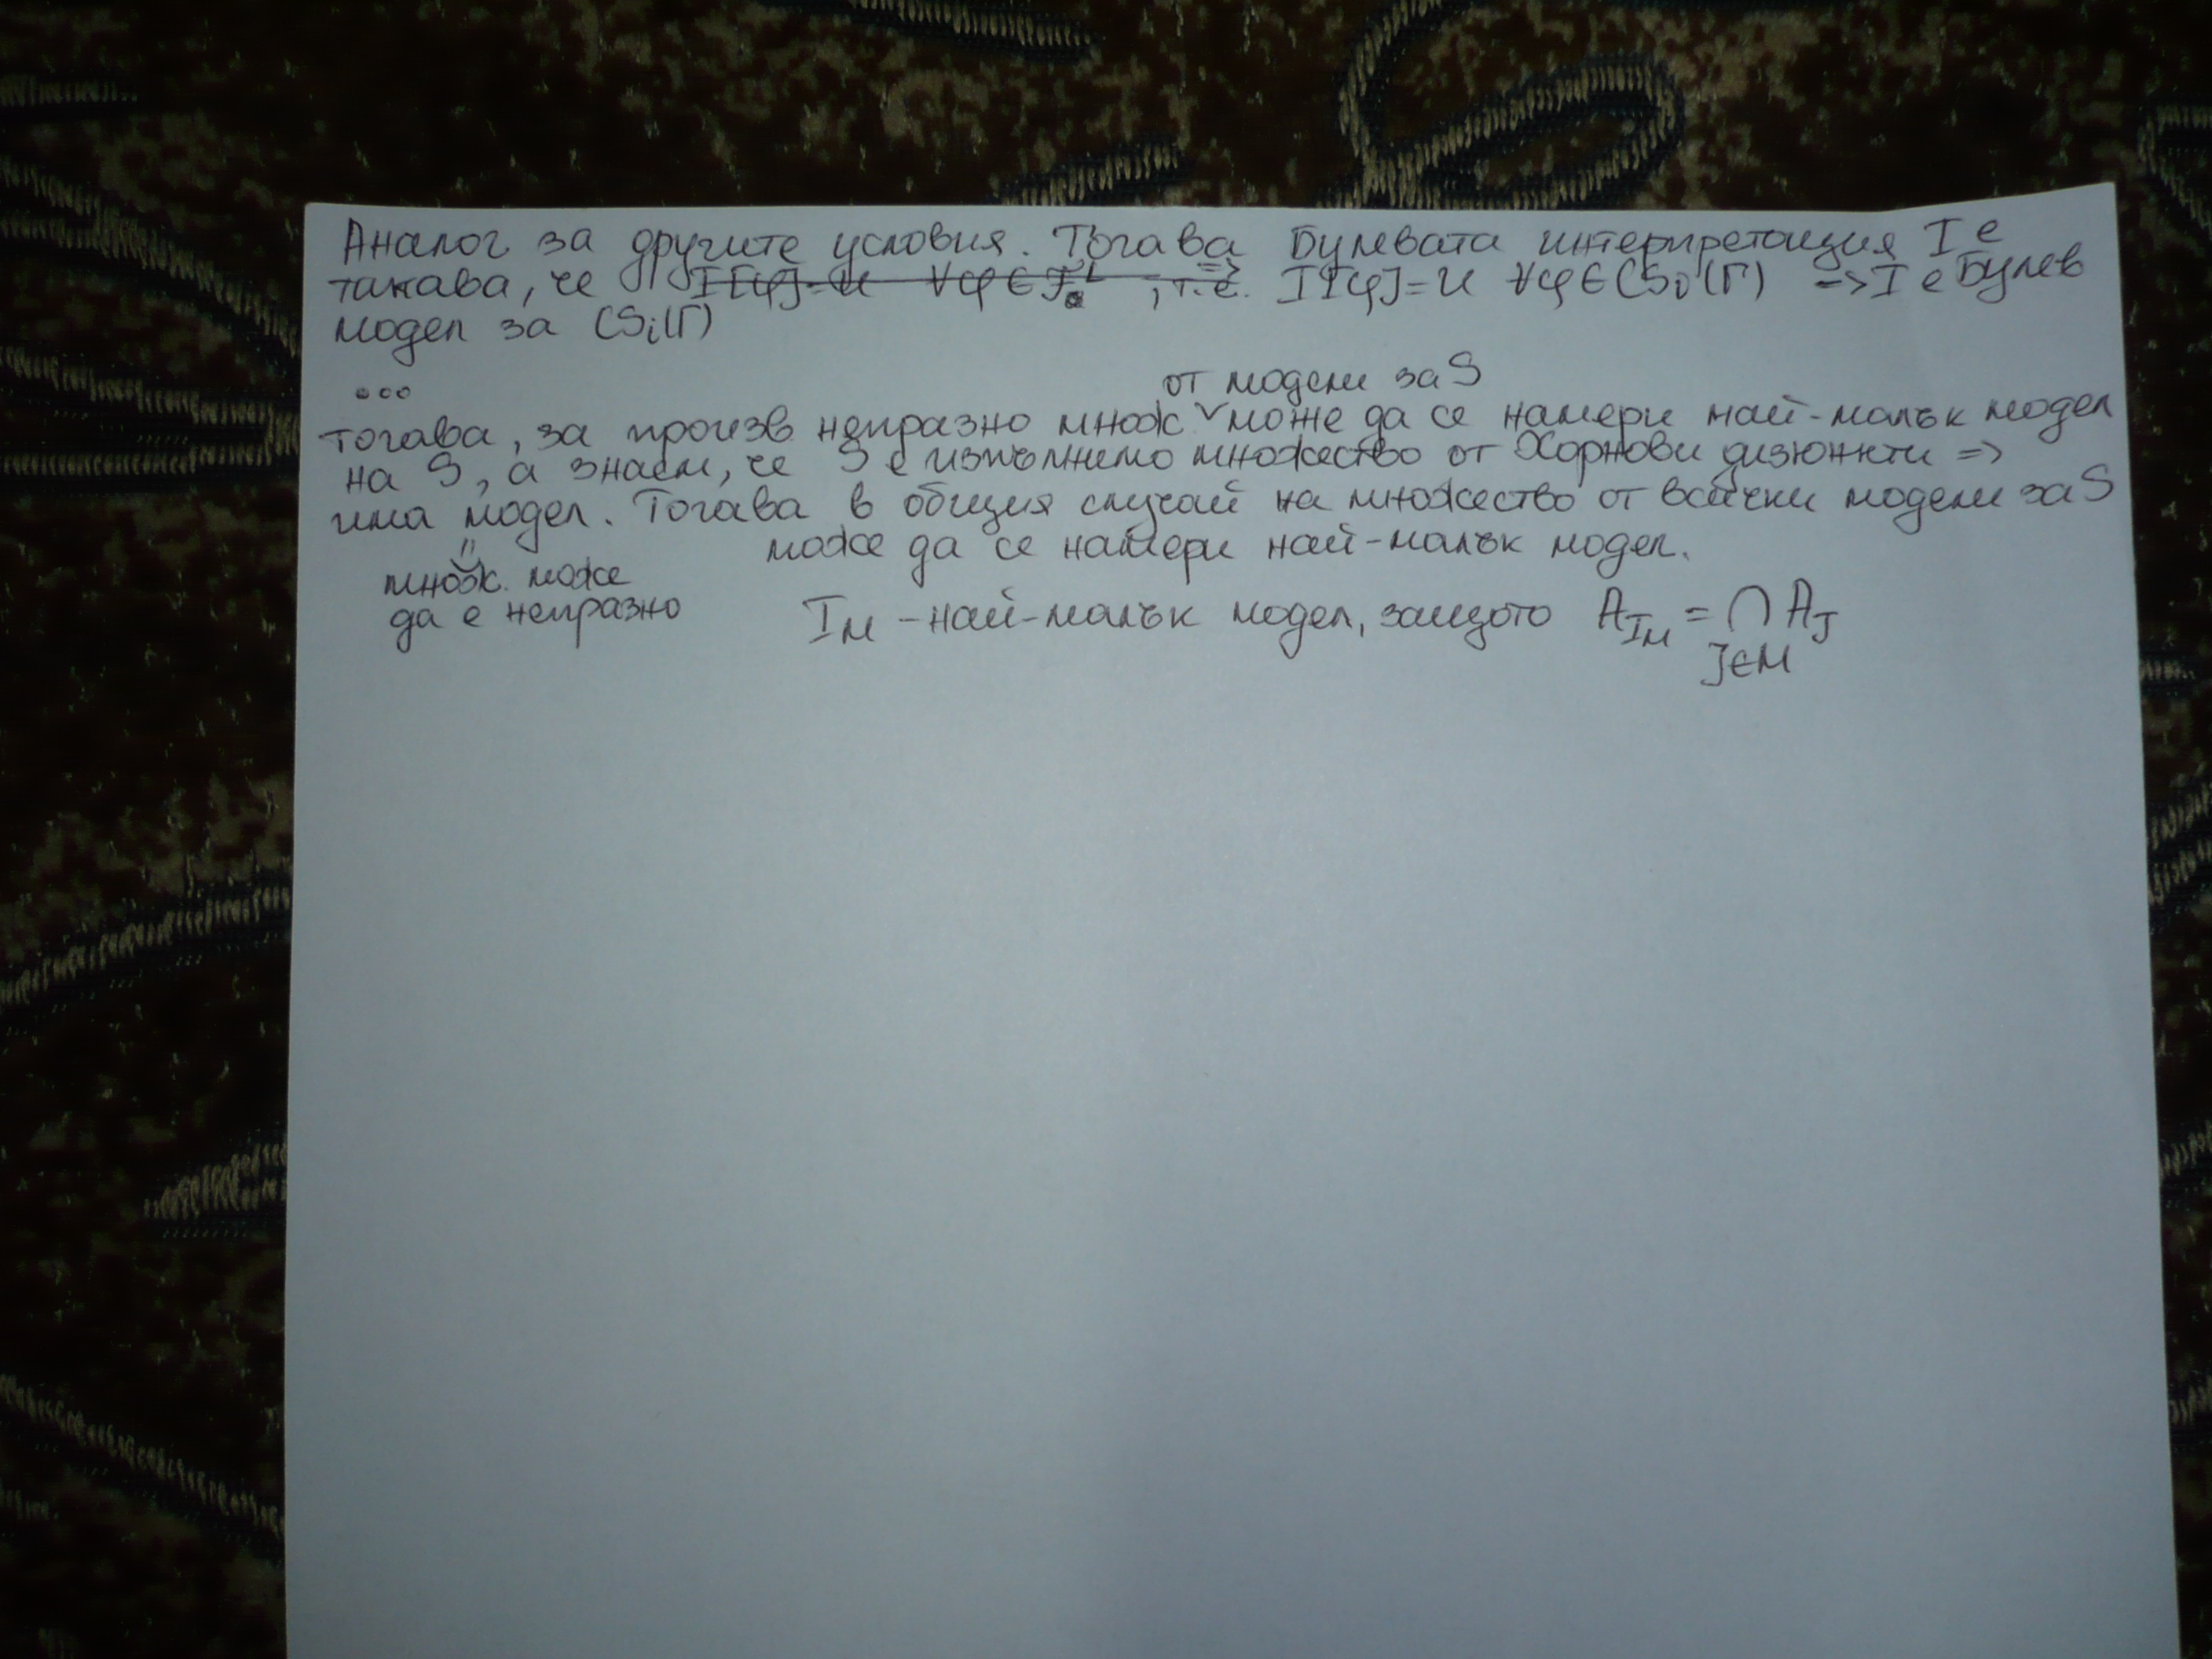 Аналог за другите условия. Тогава Булевата интерпретация I е
такава, че I[φ]=И ∀φ∈ , т.е. I[φ]=И ∀φ∈CSi(Γ) => I е Булев
модел за CSi(Γ)
...
от модели за S
тогава, за произв. непразно множ ˅ може да се намери най-малък модел
на S, а знаем, че S е изпълнимо множество от Хорнови дизюнкти =>
има модел. Тогава в общия случай на множество от всички модели за S
може да се намери най-малък модел.
множ. може
да е непразно
I_M - най-малък модел, защото A_{I_M} = ∩ A_J
J∈M